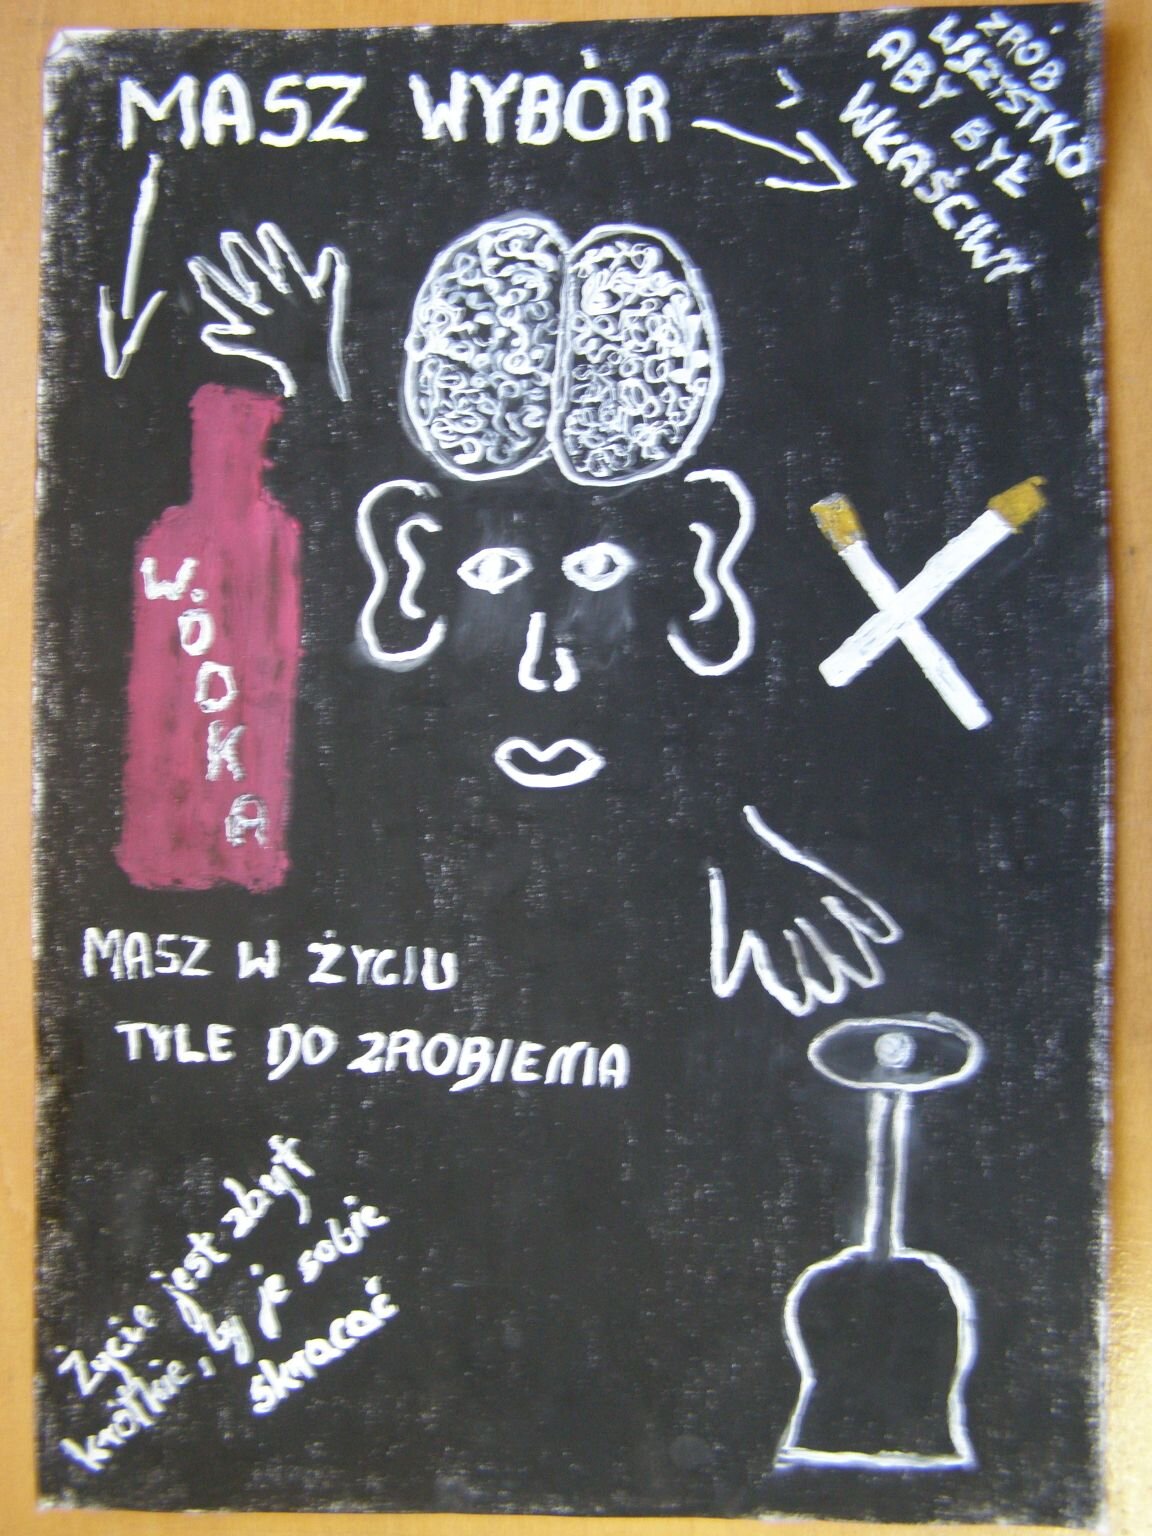 MASZ WYBÓR
ZRÓB
WSZYSTKO
ABY BYŁ
WŁAŚCIWY
W.ÓDKA
MASZ W ŻYCIU
TYLE DO ZROBIENIA
Życie jest zbyt
krótkie, by je sobie
skracać